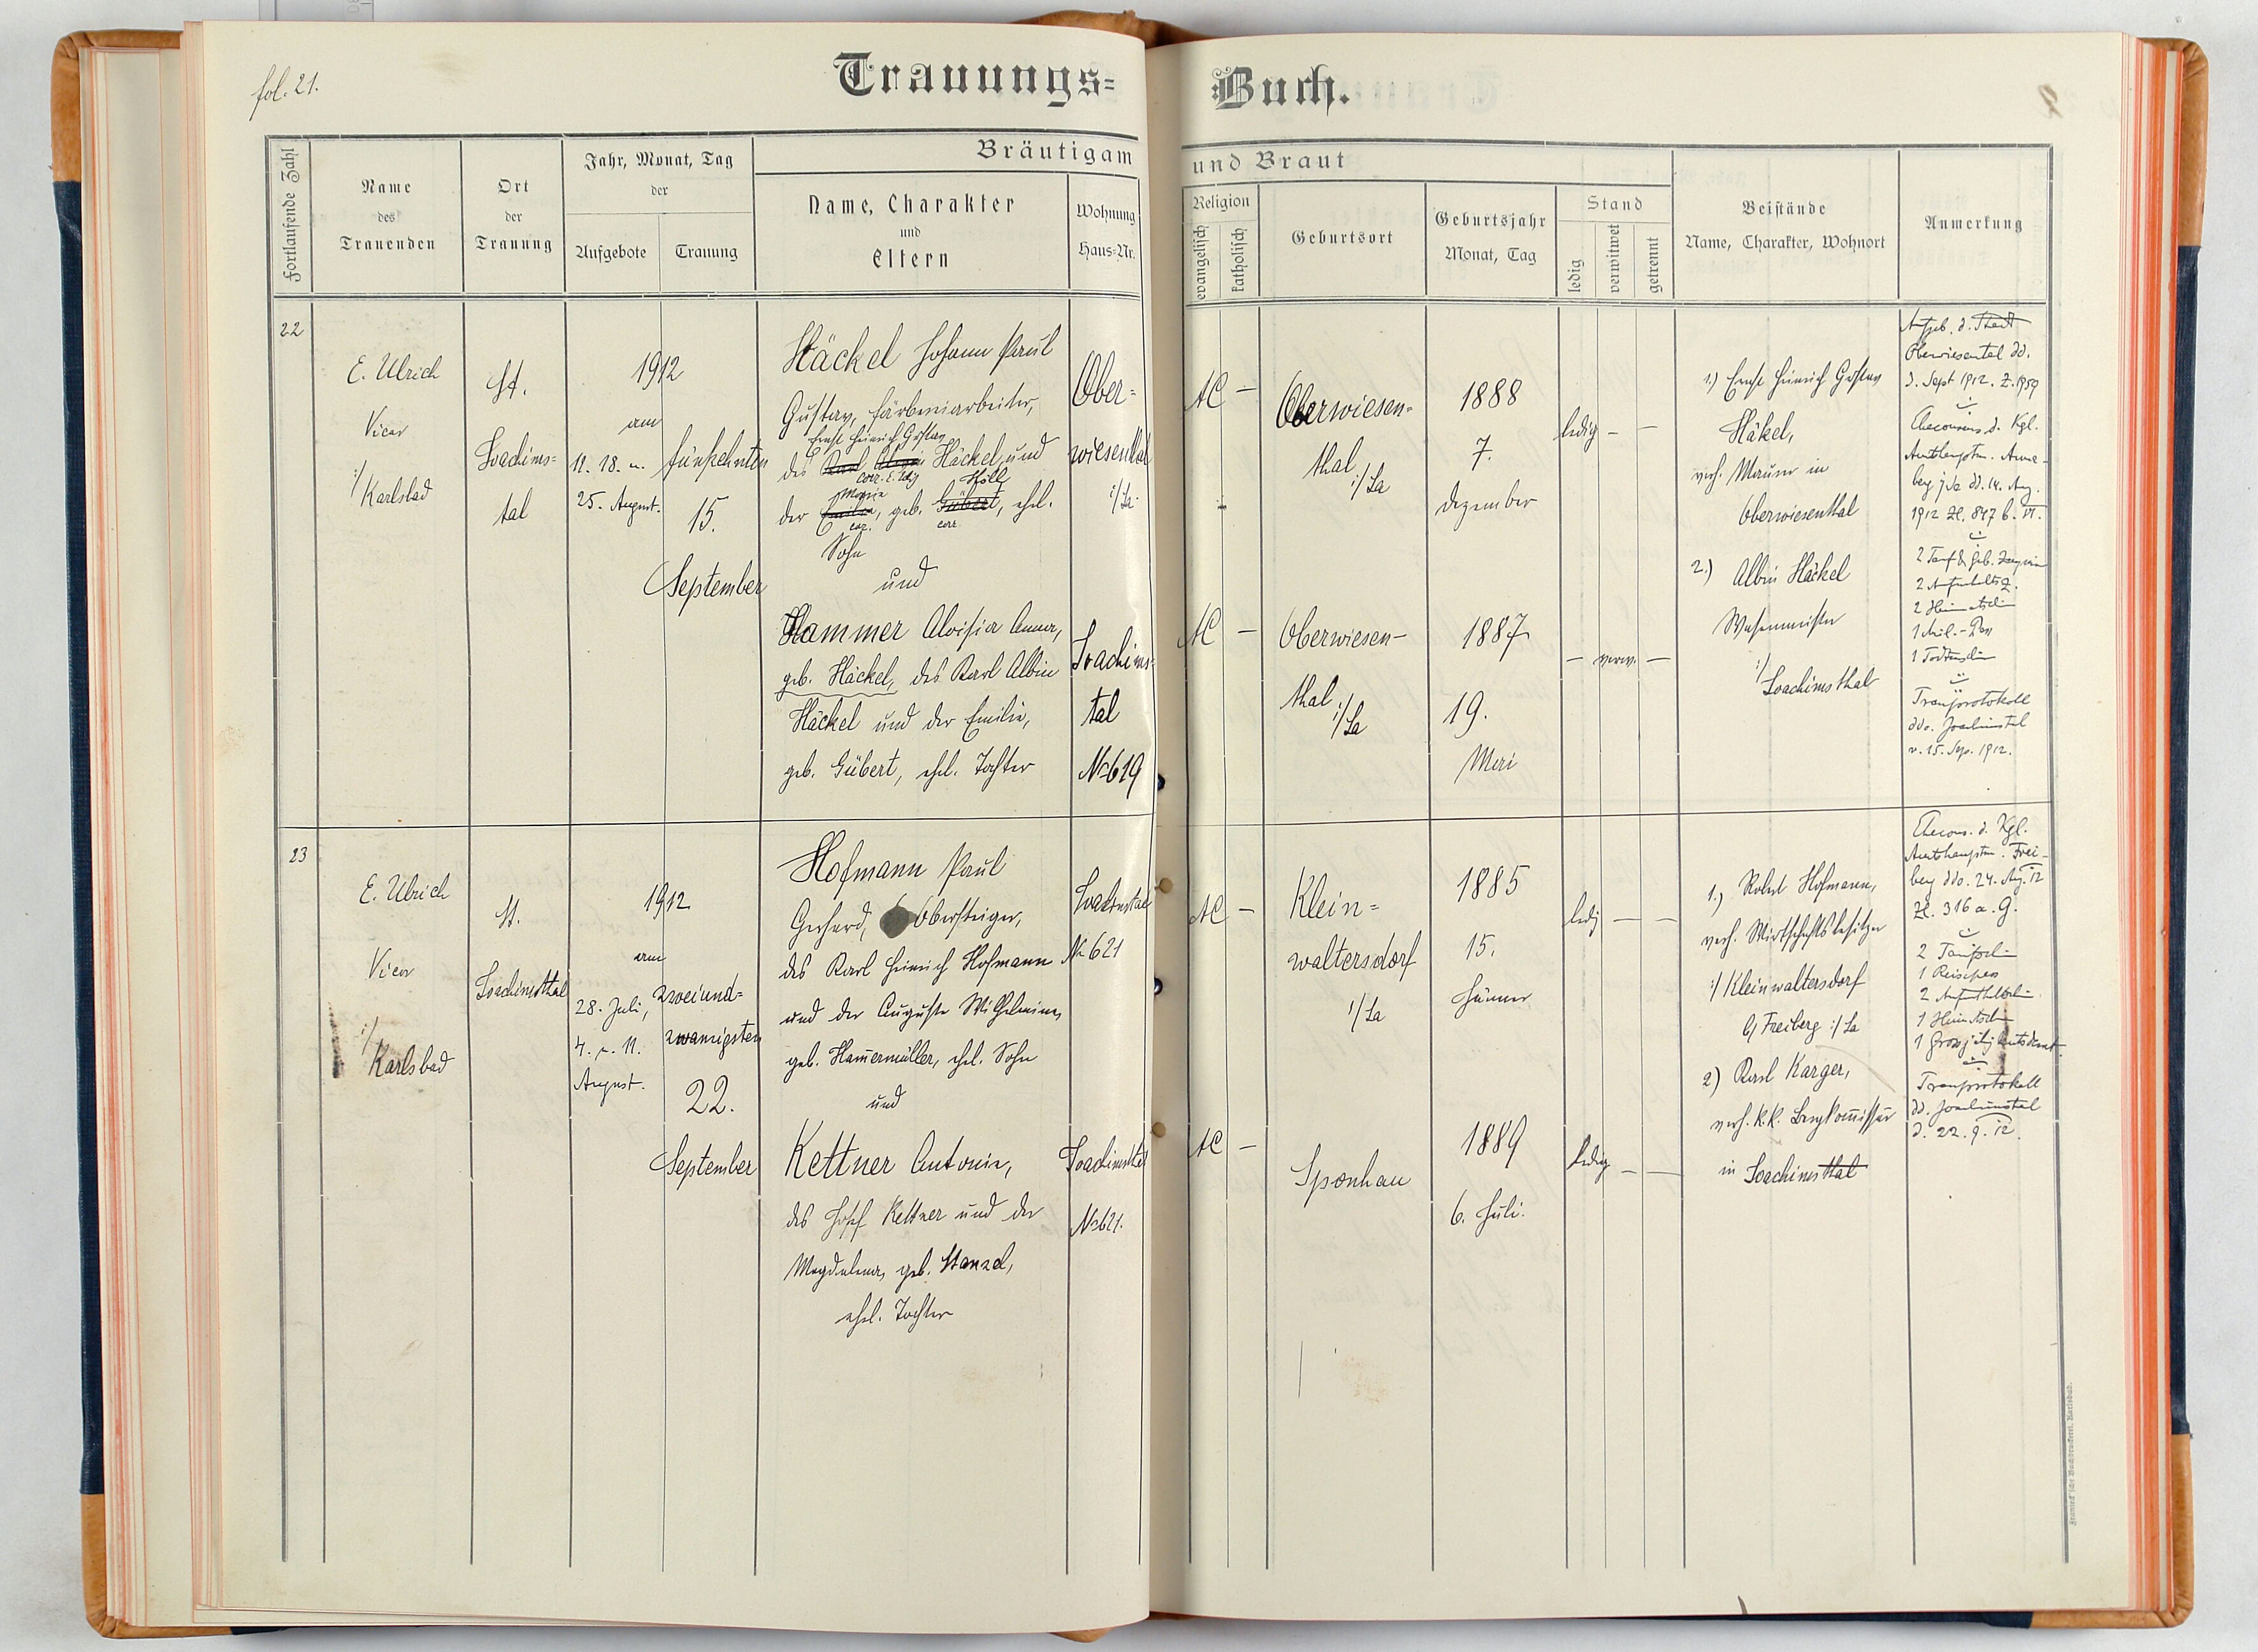 fol. 21.
Trauungs=
Buch.
Fortlaufende Zahl
Name
des
Trauenden
Ort
der
Trauung
Jahr, Monat, Tag
der
Aufgebote
Trauung
Bräutigam
Name, Charakter
und
Eltern
Wohnung
Haus=Nr.
und Braut
Religion
evangelisch
katholisch
Geburtsort
Geburtsjahr
Monat, Tag
Stand
ledig
verwitwet
getrennt
Beistände
Name, Charakter, Wohnort
Anmerkung
22
E. Ulrich
Vicar
i/
Karlsbad
St.
Joachims=
tal
1912
am
11. 18. u.
25. August.
fünfzehnten
15.
September
Häckel Johann Paul
Gustav, Färbereiarbeiter,
Ernst Heinrich Gustav
des Karl Häckel, und
Marie
der Emilie, geb. Gübert, ehel.
corr.
Sohn
und
Hammer Aloisia Anna,
geb. Häckel, des Karl Albin
Häckel und der Emilie,
geb. Gübert, ehel. Tochter
Ober=
wiesenthal
i/Sa.
Joachims=
tal
No 619
AC —
Oberwiesen=
thal
i/Sa
1888
7.
Dezember
ledig — —
AC —
Oberwiesen—
thal
i/Sa
1887
19.
Mai
— verw. —
1.) Ernst Heinrich Gustav
Häkel,
verh. Maurer in
Oberwiesenthal
2.) Albin Häckel
i/
Joachimsthal
Aufgeb. d. Stadt
Oberwiesental dd.
3. Sept 1912. Z. 1959
Eheconsens d. Kgl.
Amtshauptm. Anna-
berg i/Sa dd. 14. Aug.
1912 Zl. 847 b. VI.
2 Heimatschein
1 Todtenschein
Trauprotokoll
ddo. Joachimstal
v. 15. Sep. 1912.
23
E. Ulrich
Vicar
i/
Karlsbad
St.
Joachimsthal
1912
am
28. Juli,
4. u. 11.
August.
zweiund=
zwanzigsten
22.
September
Hofmann Paul
Gerhard, Obersteiger,
des Karl Heinrich Hofmann
und der Auguste Wilhelmine,
geb. Hamermüller, ehel. Sohn
und
Kettner Antonie,
des Josef Kettner und der
Magdalena, geb. Stanzel,
ehel. Tochter
Joachimstal
No 621
Joachimsthal
No 621.
AC —
Klein=
waltersdorf
i/Sa
1885
15.
Jänner
ledig — —
AC —
Sponhau
1889
6. Juli.
ledig — —
1.) Robert Hofmann,
verh. Wirtschaftsbesitzer
i/ Kleinwaltersdorf
b/ Freiberg i/Sa
2) Karl Karger,
verh. k.k. Bergkommissär
in Joachimsthal
Ehecons. d. Kgl.
Amtshauptm. Frei-
berg ddo. 24. Aug. 12
Zl. 316 a. G.
2 Taufschein
1 Reisepass
2 Aufenthaltschein
1 Heimatschein
Trauprotokoll
dd. Joachimstal
d. 22. 9. 12.